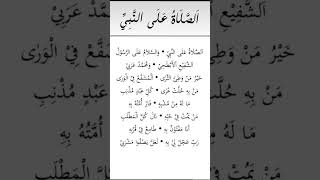 اَلصَّلَاةُ عَلَى النَّبِيِّ
اَلصَّلَاةُ عَلَى النَّبِيّ • وَالسَّلَامُ عَلَى الرَّسُوْلْ
الشَّفِيْعِ الْأَبْطَحِيْ • وَمُحَمَّدْ عَرَبِيْ
خَيْرُ مَنْ وَطِئَ الثَّرَى • الْمُشَفَّعْ فِي الْوَرَى
مَنْ بِهِ حُلَّتْ عُرَى • كُلِّ عَبْدٍ مُذْنِبِ
مَا لَهُ مِنْ مُشْبِهِ • فَازَ أُمَّتُهُ بِهِ
مَنْ يَمُتْ فِيْ حُبِّهِ • نَالَ كُلَّ الْمَطْلَبِ
أَنَا مَفْتُوْنٌ بِهِ • طَامِعٌ فِيْ قُرْبِهِ
رَبِّ عَجِّلْ لِيْ بِهِ • لَعَلَّ يَصْفُو مَشْرَبِيْ